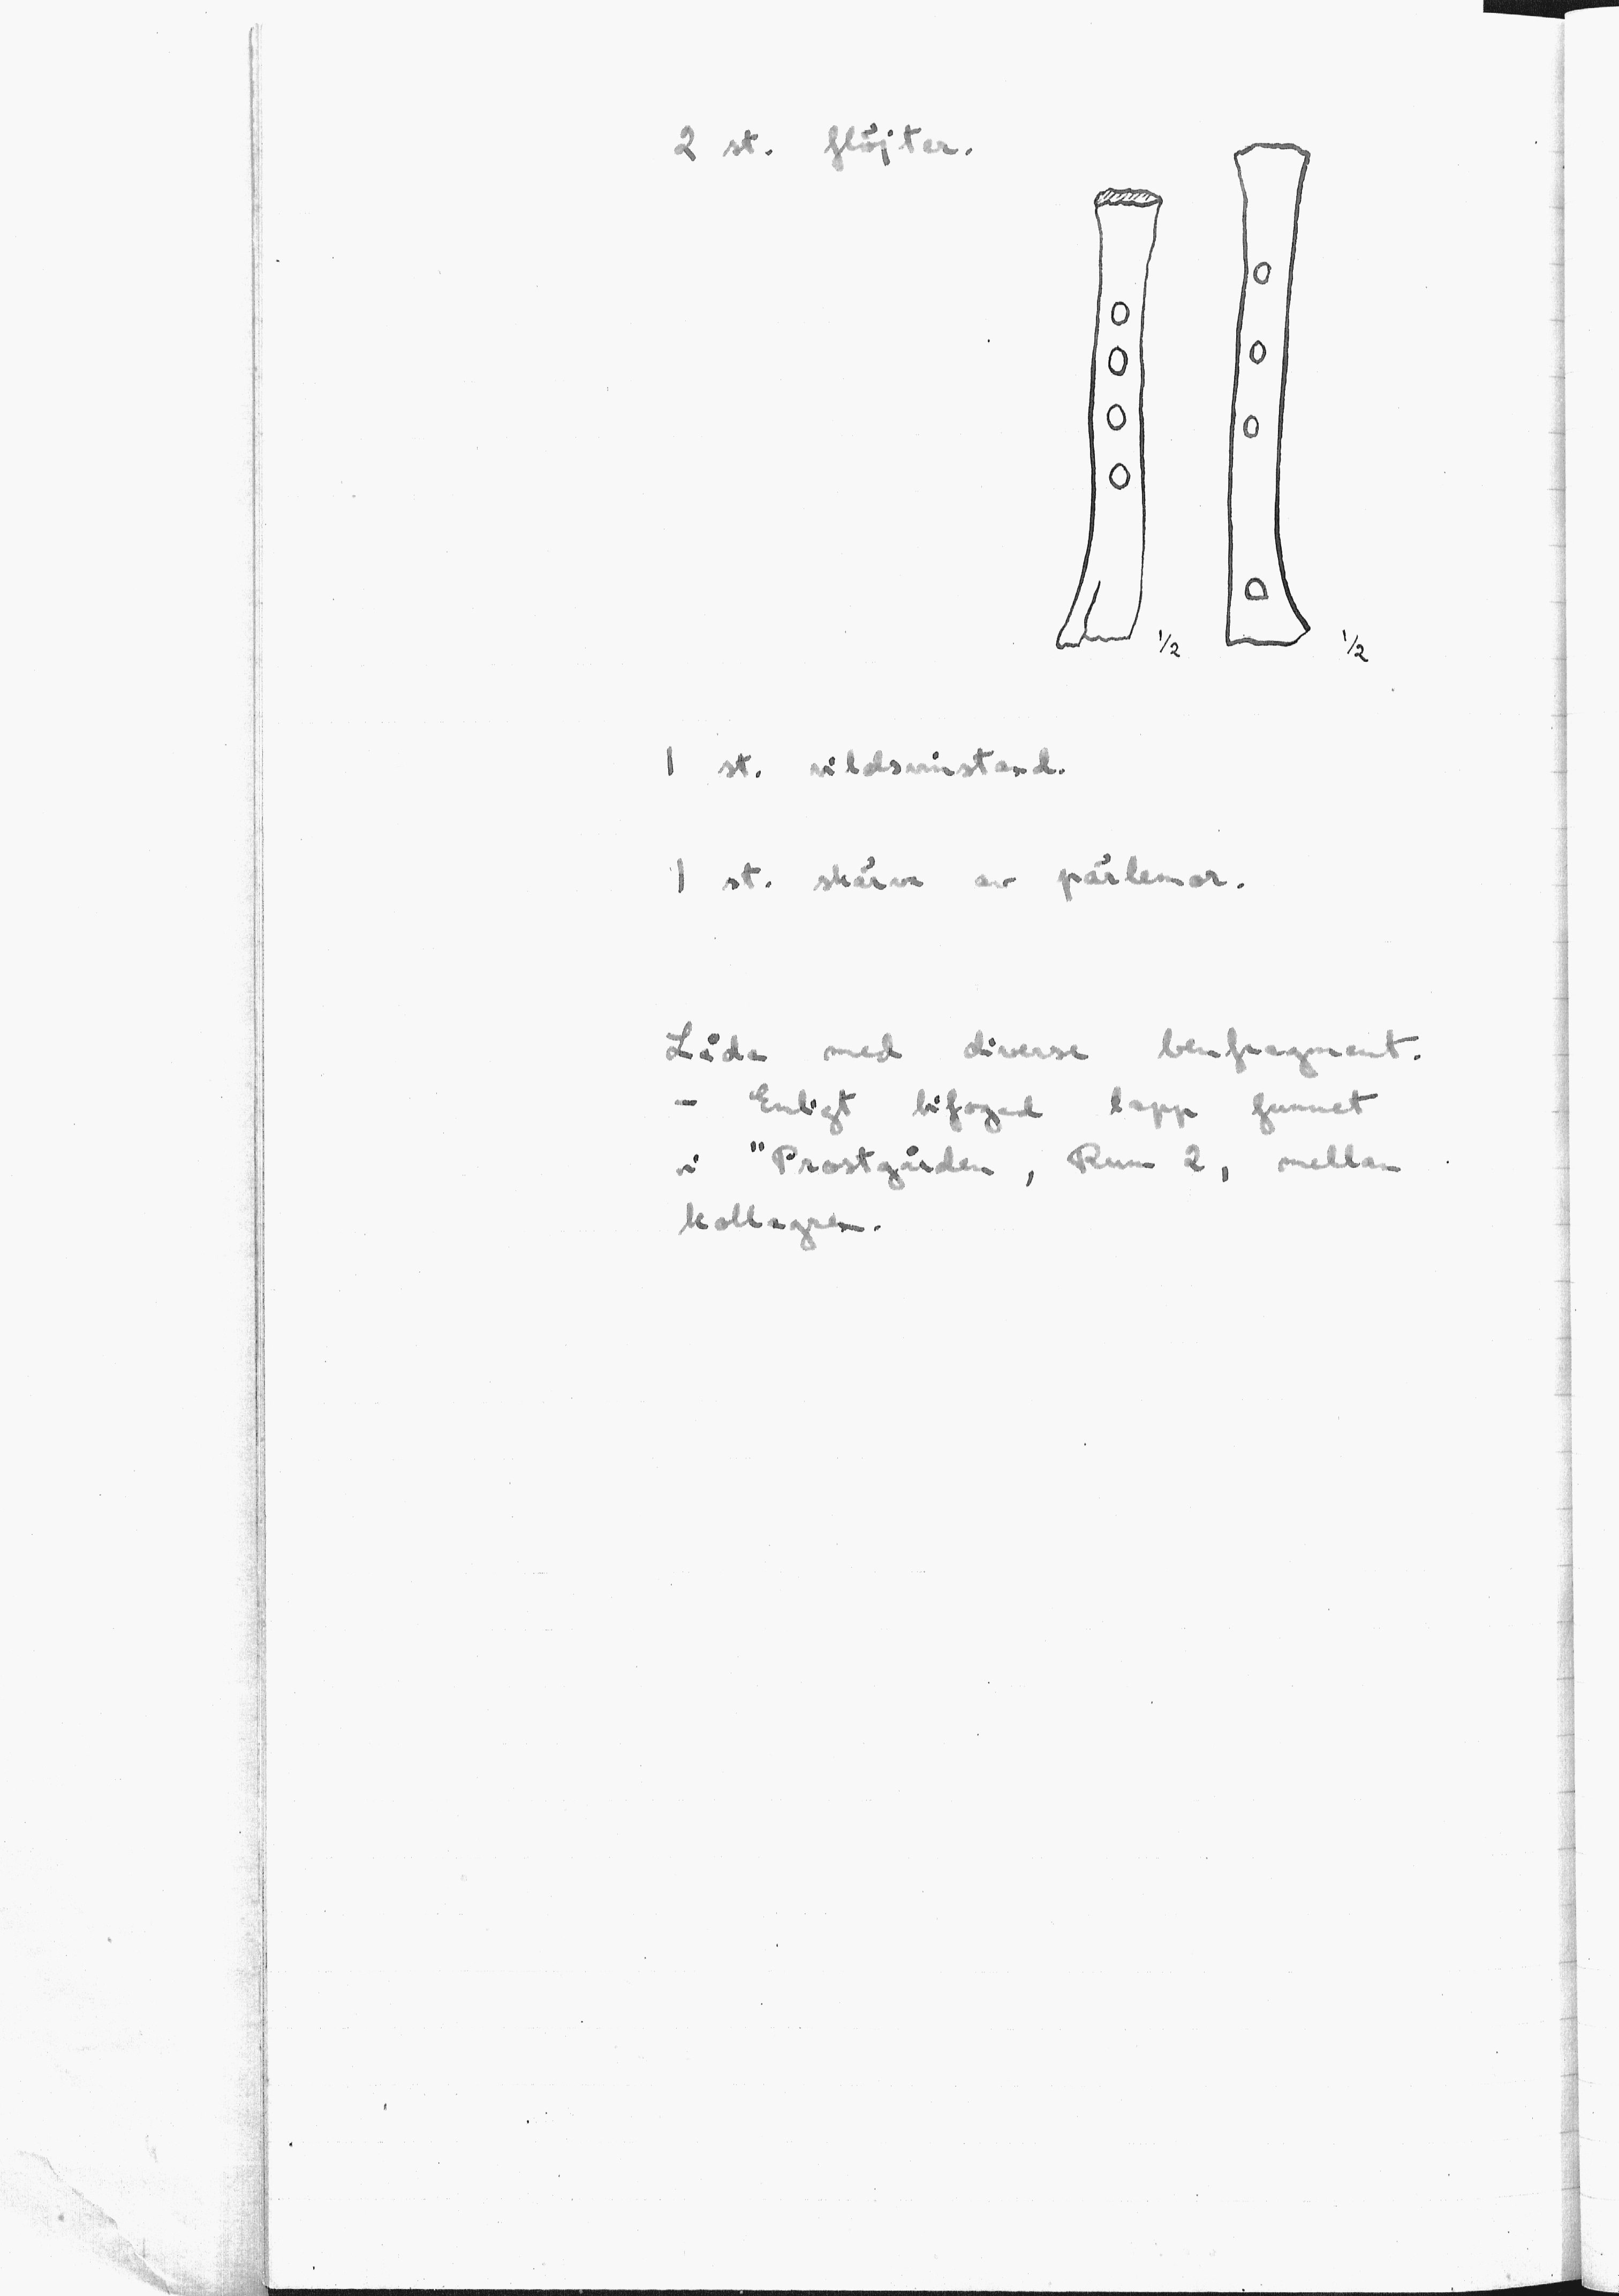 2 st. flöjter.
1/2 1/2
1 st. vildsvinstand.
1 st. skärva av pärlemor.
Låda med diverse benfragment.
- Enligt bifogad lapp funnet
i "Prostgården, Rum 2, mellan
kollagren.